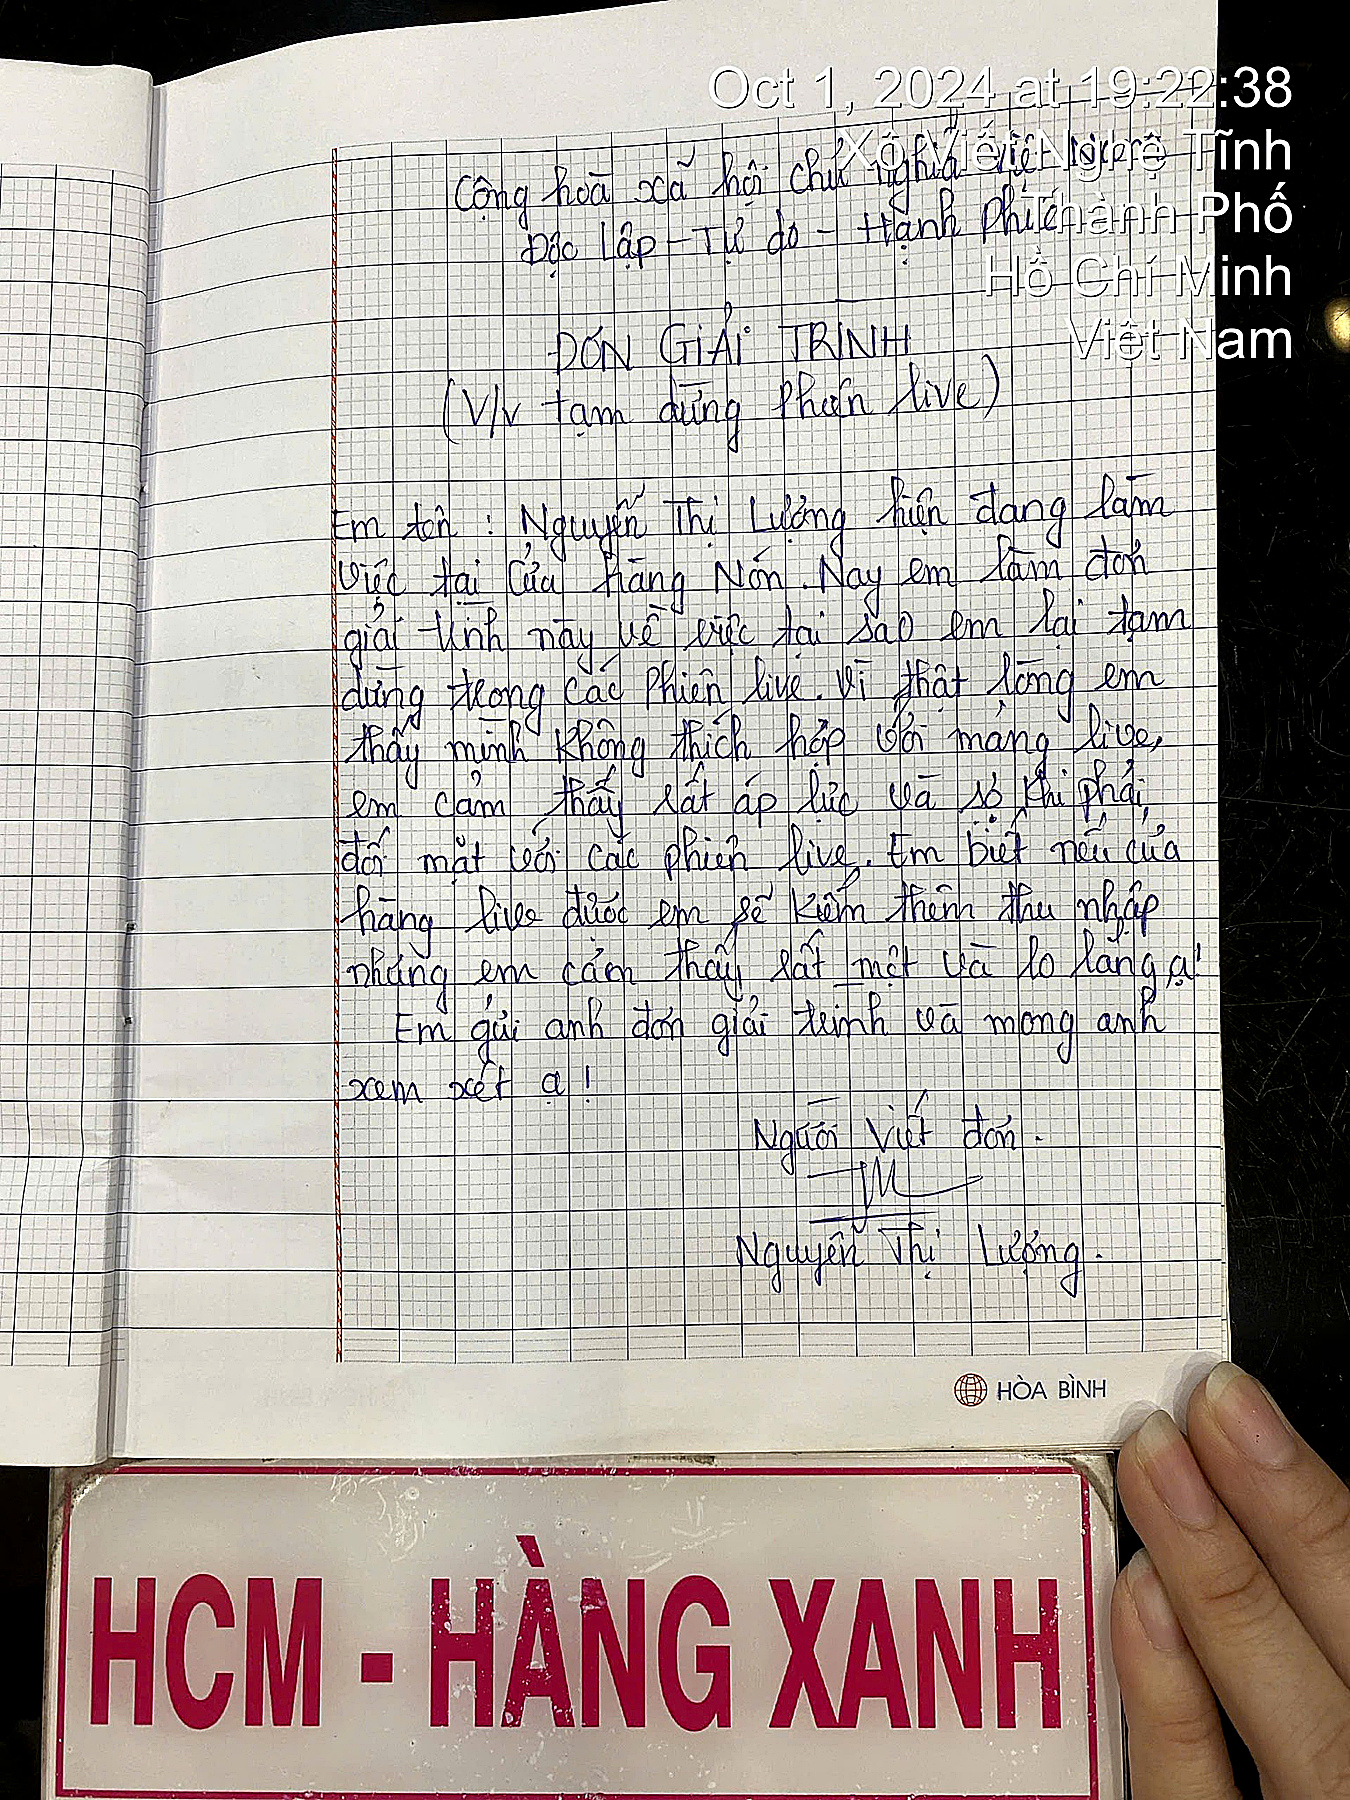 Oct 1, 2024 at 19:22:38
Xô Viết Nghệ Tĩnh
Thành Phố
Hồ Chí Minh
Việt Nam
Cộng hoà xã hội chủ nghĩa Việt Nam
Độc lập - Tự do - Hạnh phúc
ĐƠN GIẢI TRÌNH
(V/v tạm dừng phiên live)
Em tên : Nguyễn Thị Lượng hiện đang làm
việc tại Cửa hàng Nón. Nay em làm đơn
giải trình này về việc tại sao em lại tạm
dừng trong các phiên live. Vì thật lòng em
thấy mình không thích hợp với mảng live,
em cảm thấy rất áp lực và sợ khi phải
đối mặt với các phiên live. Em biết nếu cửa
hàng live được em sẽ kiếm thêm thu nhập
nhưng em cảm thấy rất mệt và lo lắng ạ!
Em gửi anh đơn giải trình và mong anh
xem xét ạ!
Người viết đơn.
Nguyễn Thị Lượng.
HÒA BÌNH
HCM - HÀNG XANH